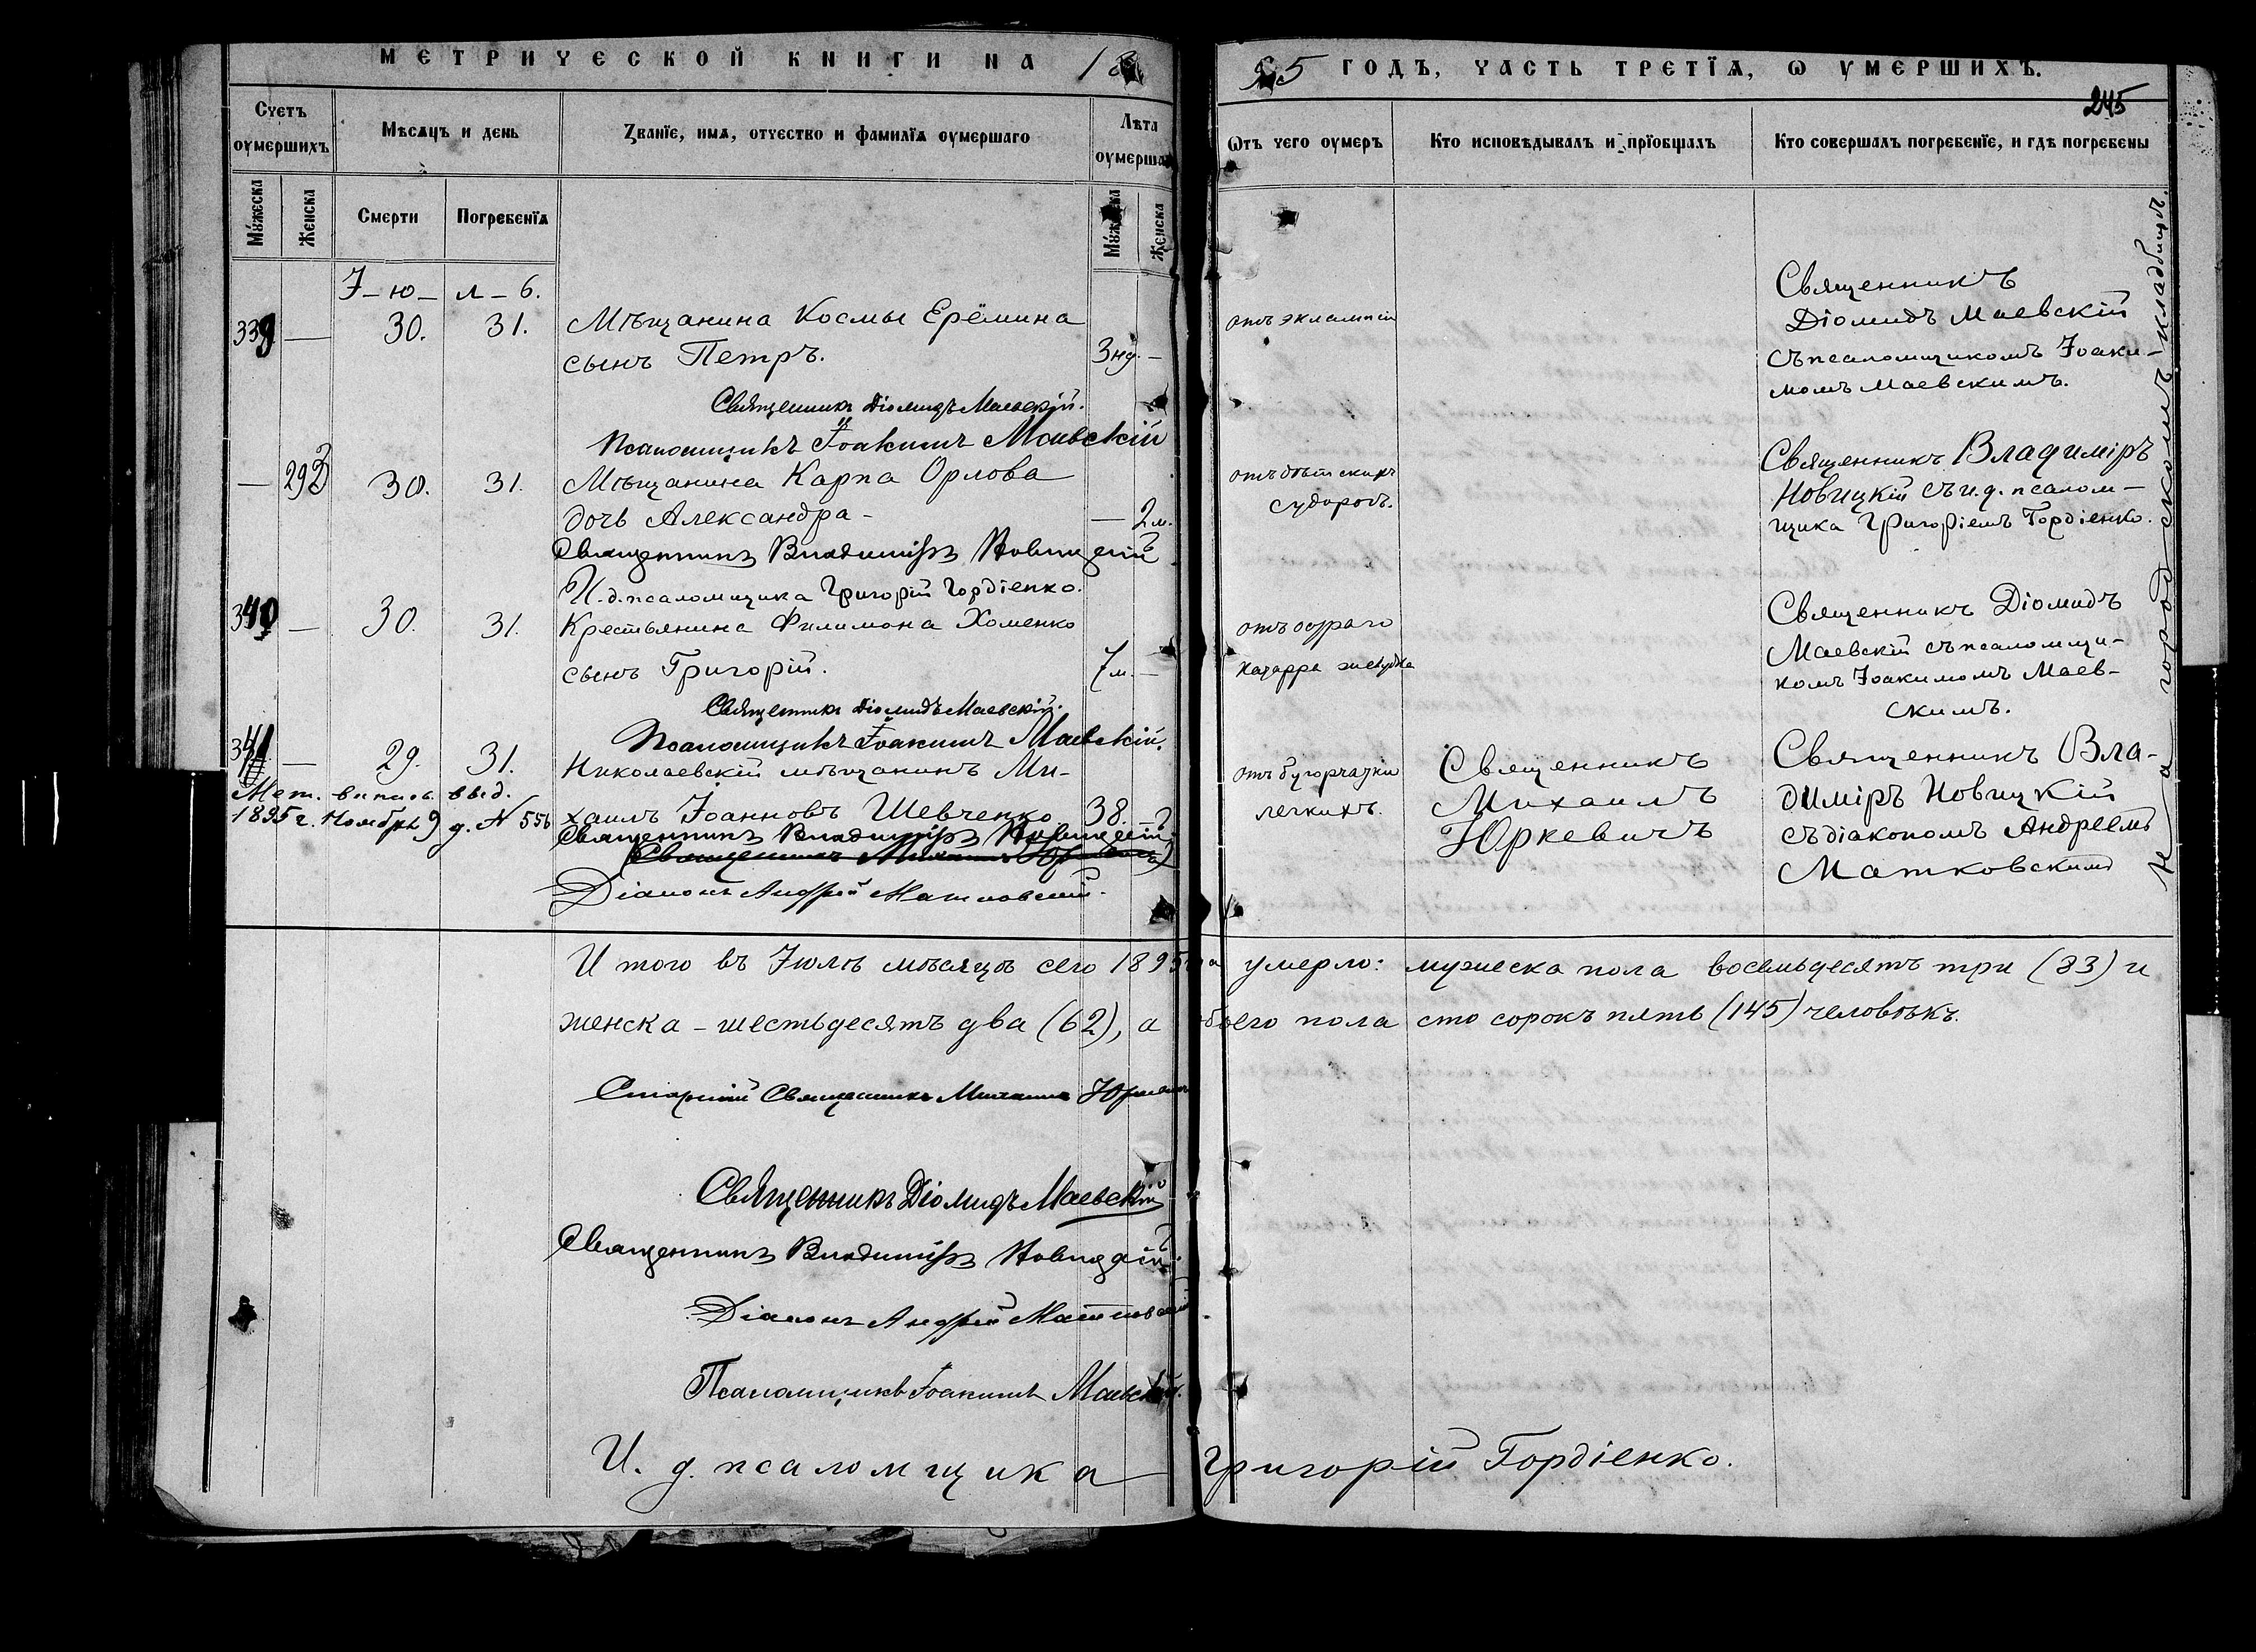 МЕТРИЧЕСКОЙ КНИГИ НА 18
95 ГОДЪ, ЧАСТЬ ТРЕТІѦ, Ѡ УМЕРШИХЪ.
245
Счетъ оумершихъ
Мѣсѧцъ и день
Званїе, имѧ, отчество и фамилїѧ оумершаго
Лѣта оумершаго
Ѿтъ чего оумеръ
Кто исповѣдывалъ и прїобщалъ
Кто совершалъ погребенїе, и гдѣ погребены
Мужеска
Женска
Смерти
Погребенїѧ
Мужеска
Женска
І-ю- л-ѣ.
339 — 30. 31. Мѣщанина Космы Ерёмина
сынъ Петръ. 3 нд. —
отъ эклампсіи
Священникъ
Діомидъ Маевскій
съ псаломщикомъ Іоаки-
момъ Маевскимъ.
Священникъ Діомидъ Маевскій.
Псаломщикъ Іоакимъ Маевскій
— 293 30. 31. Мѣщанина Карпа Орлова
дочь Александра - — 2 м.
отъ дѣтскихъ
судорогъ.
Священникъ Владиміръ
Новицкій съ и.д. псалом-
щика Григоріемъ Гордіенко.
Священникъ Владиміръ Новицкій
И. д. псаломщика Григорій Гордіенко.
340 — 30. 31. Крестьянина Филимона Хоменко
сынъ Григорій. 7 м. —
отъ остраго
катарра желудка
Священникъ Діомидъ
Маевскій съ псаломщи-
комъ Іоакимомъ Маев-
скимъ.
Священникъ Діомидъ Маевскій.
Псаломщикъ Іоакимъ Маевскій.
341 — 29. 31. Николаевскій мѣщанинъ Ми-
хаилъ Іоанновъ Шевченко. 38.
Мет. выпись выд.
1895 г. Ноября 9 д. № 556
отъ бугорчатки
легкихъ.
Священникъ
Михаилъ
Юркевичъ
Священникъ Вла-
диміръ Новицкій
съ діакономъ Андреемъ
Матковскимъ
Священникъ Владиміръ Новицкій
Священникъ Михаилъ Юркевичъ
Діаконъ Андрей Матковскій.
На городскомъ кладбищѣ.
И того въ Іюлѣ мѣсяцѣ сего 1895 умерло: мужеска пола восемьдесятъ три (83) и
женска - шестьдесятъ два (62), а обоего пола сто сорокъ пять (145) человѣкъ.
Старшій Священникъ Михаилъ Юркевичъ
Священникъ Діомидъ Маевскій
Священникъ Владиміръ Новицкій.
Діаконъ Андрей Матковскій
Псаломщикъ Іоакимъ Маевскій.
И. д. псаломщика Григорій Гордіенко.